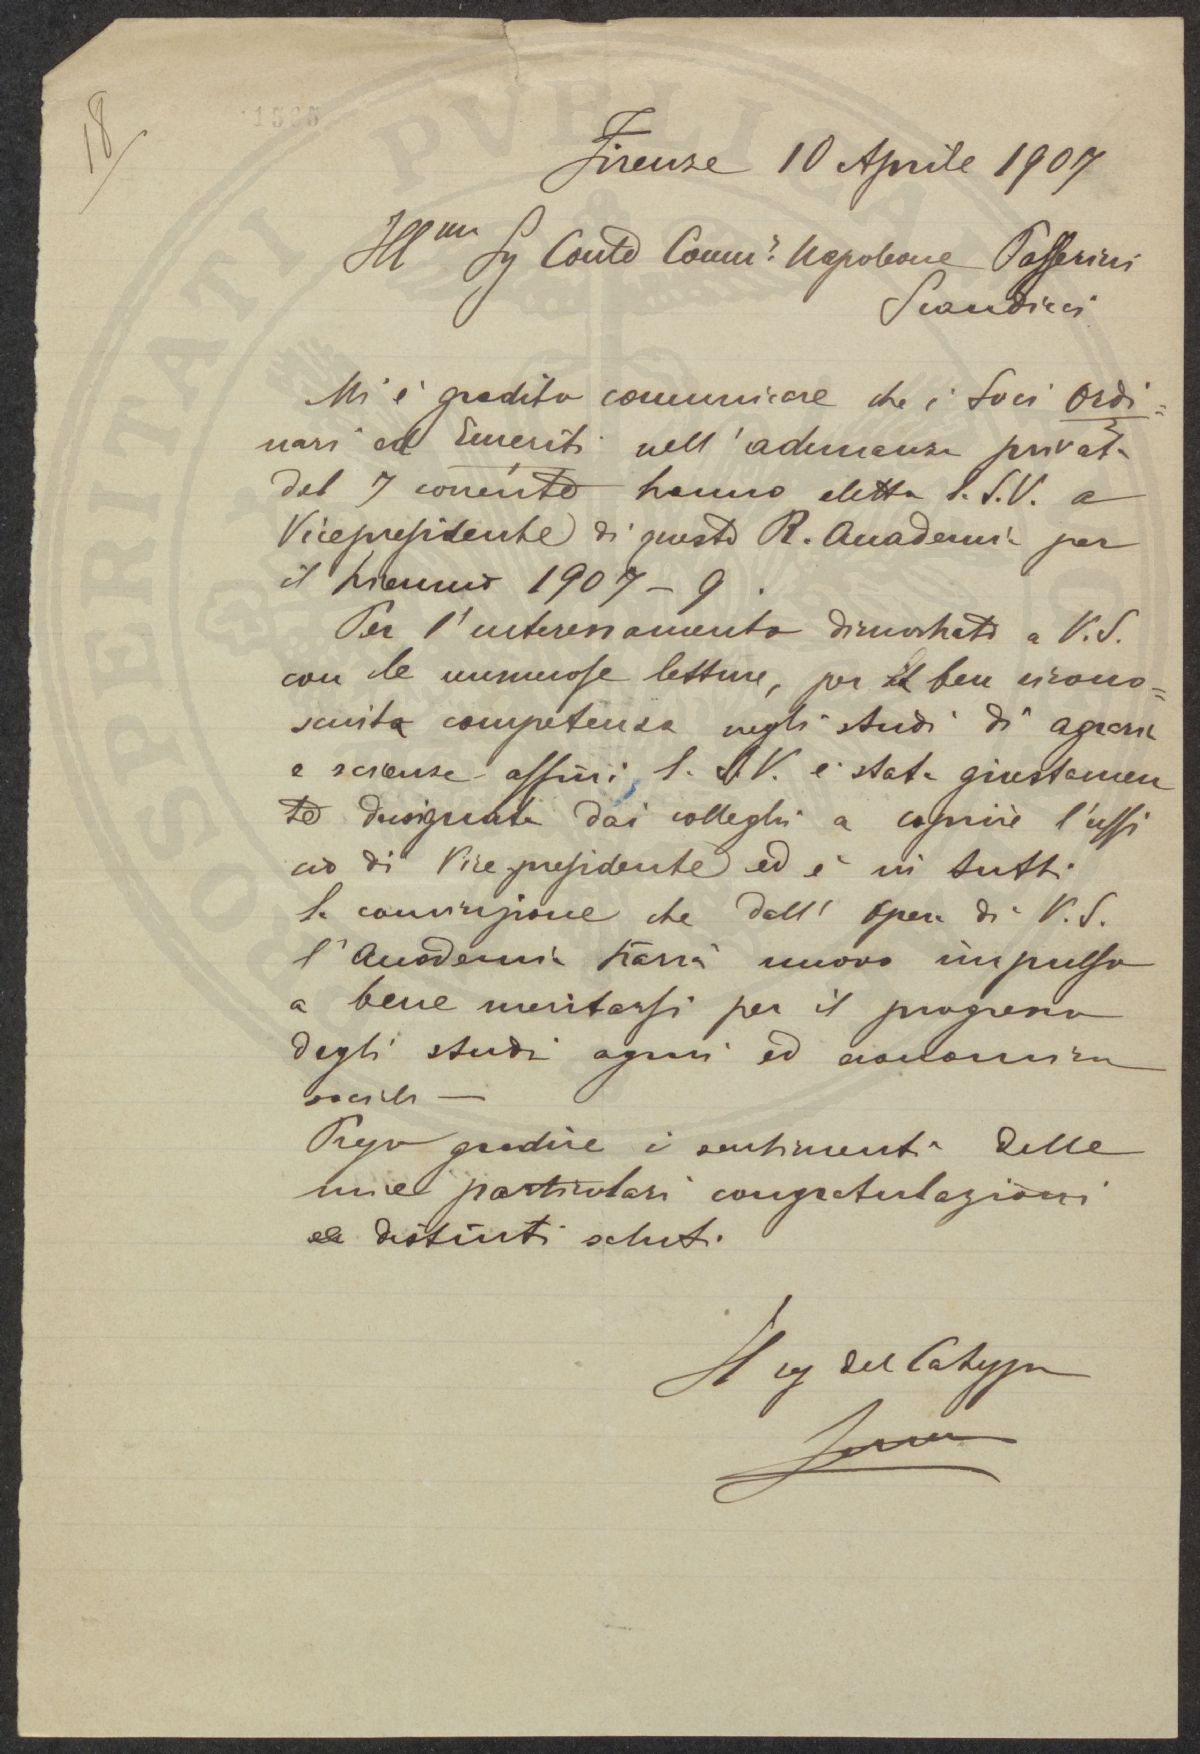 18
1333
PROSPERITATI PVBLICAE
Firenze 10 Aprile 1907
Illmo Sg Conte Comm.r Napoleone Passerini
Scandicci
Mi è gradito comunicare che i Soci Ordi=
nari ed Emeriti nell'adunanza privata
del 7 corrente hanno eletta la S.V. a
Vicepresidente di questa R. Accademia per
il triennio 1907-9.
Per l'interessamento dimostrato a V.S.
con le numerose letture, per la ben ricono=
sciuta competenza negli studi di agraria
e scienze affini, la S.V. è stata giustamen
te designata dai colleghi a coprire l'uffi
cio di Vice presidente ed è in tutti
la convinzione che dall'opera di V.S.
l'Accademia trarrà nuovo impulso
a bene meritarsi per il progresso
degli studi agrari ed economico
sociali —
Prego gradire i sentimenti delle
mie particolari congratulazioni
e distinti saluti.